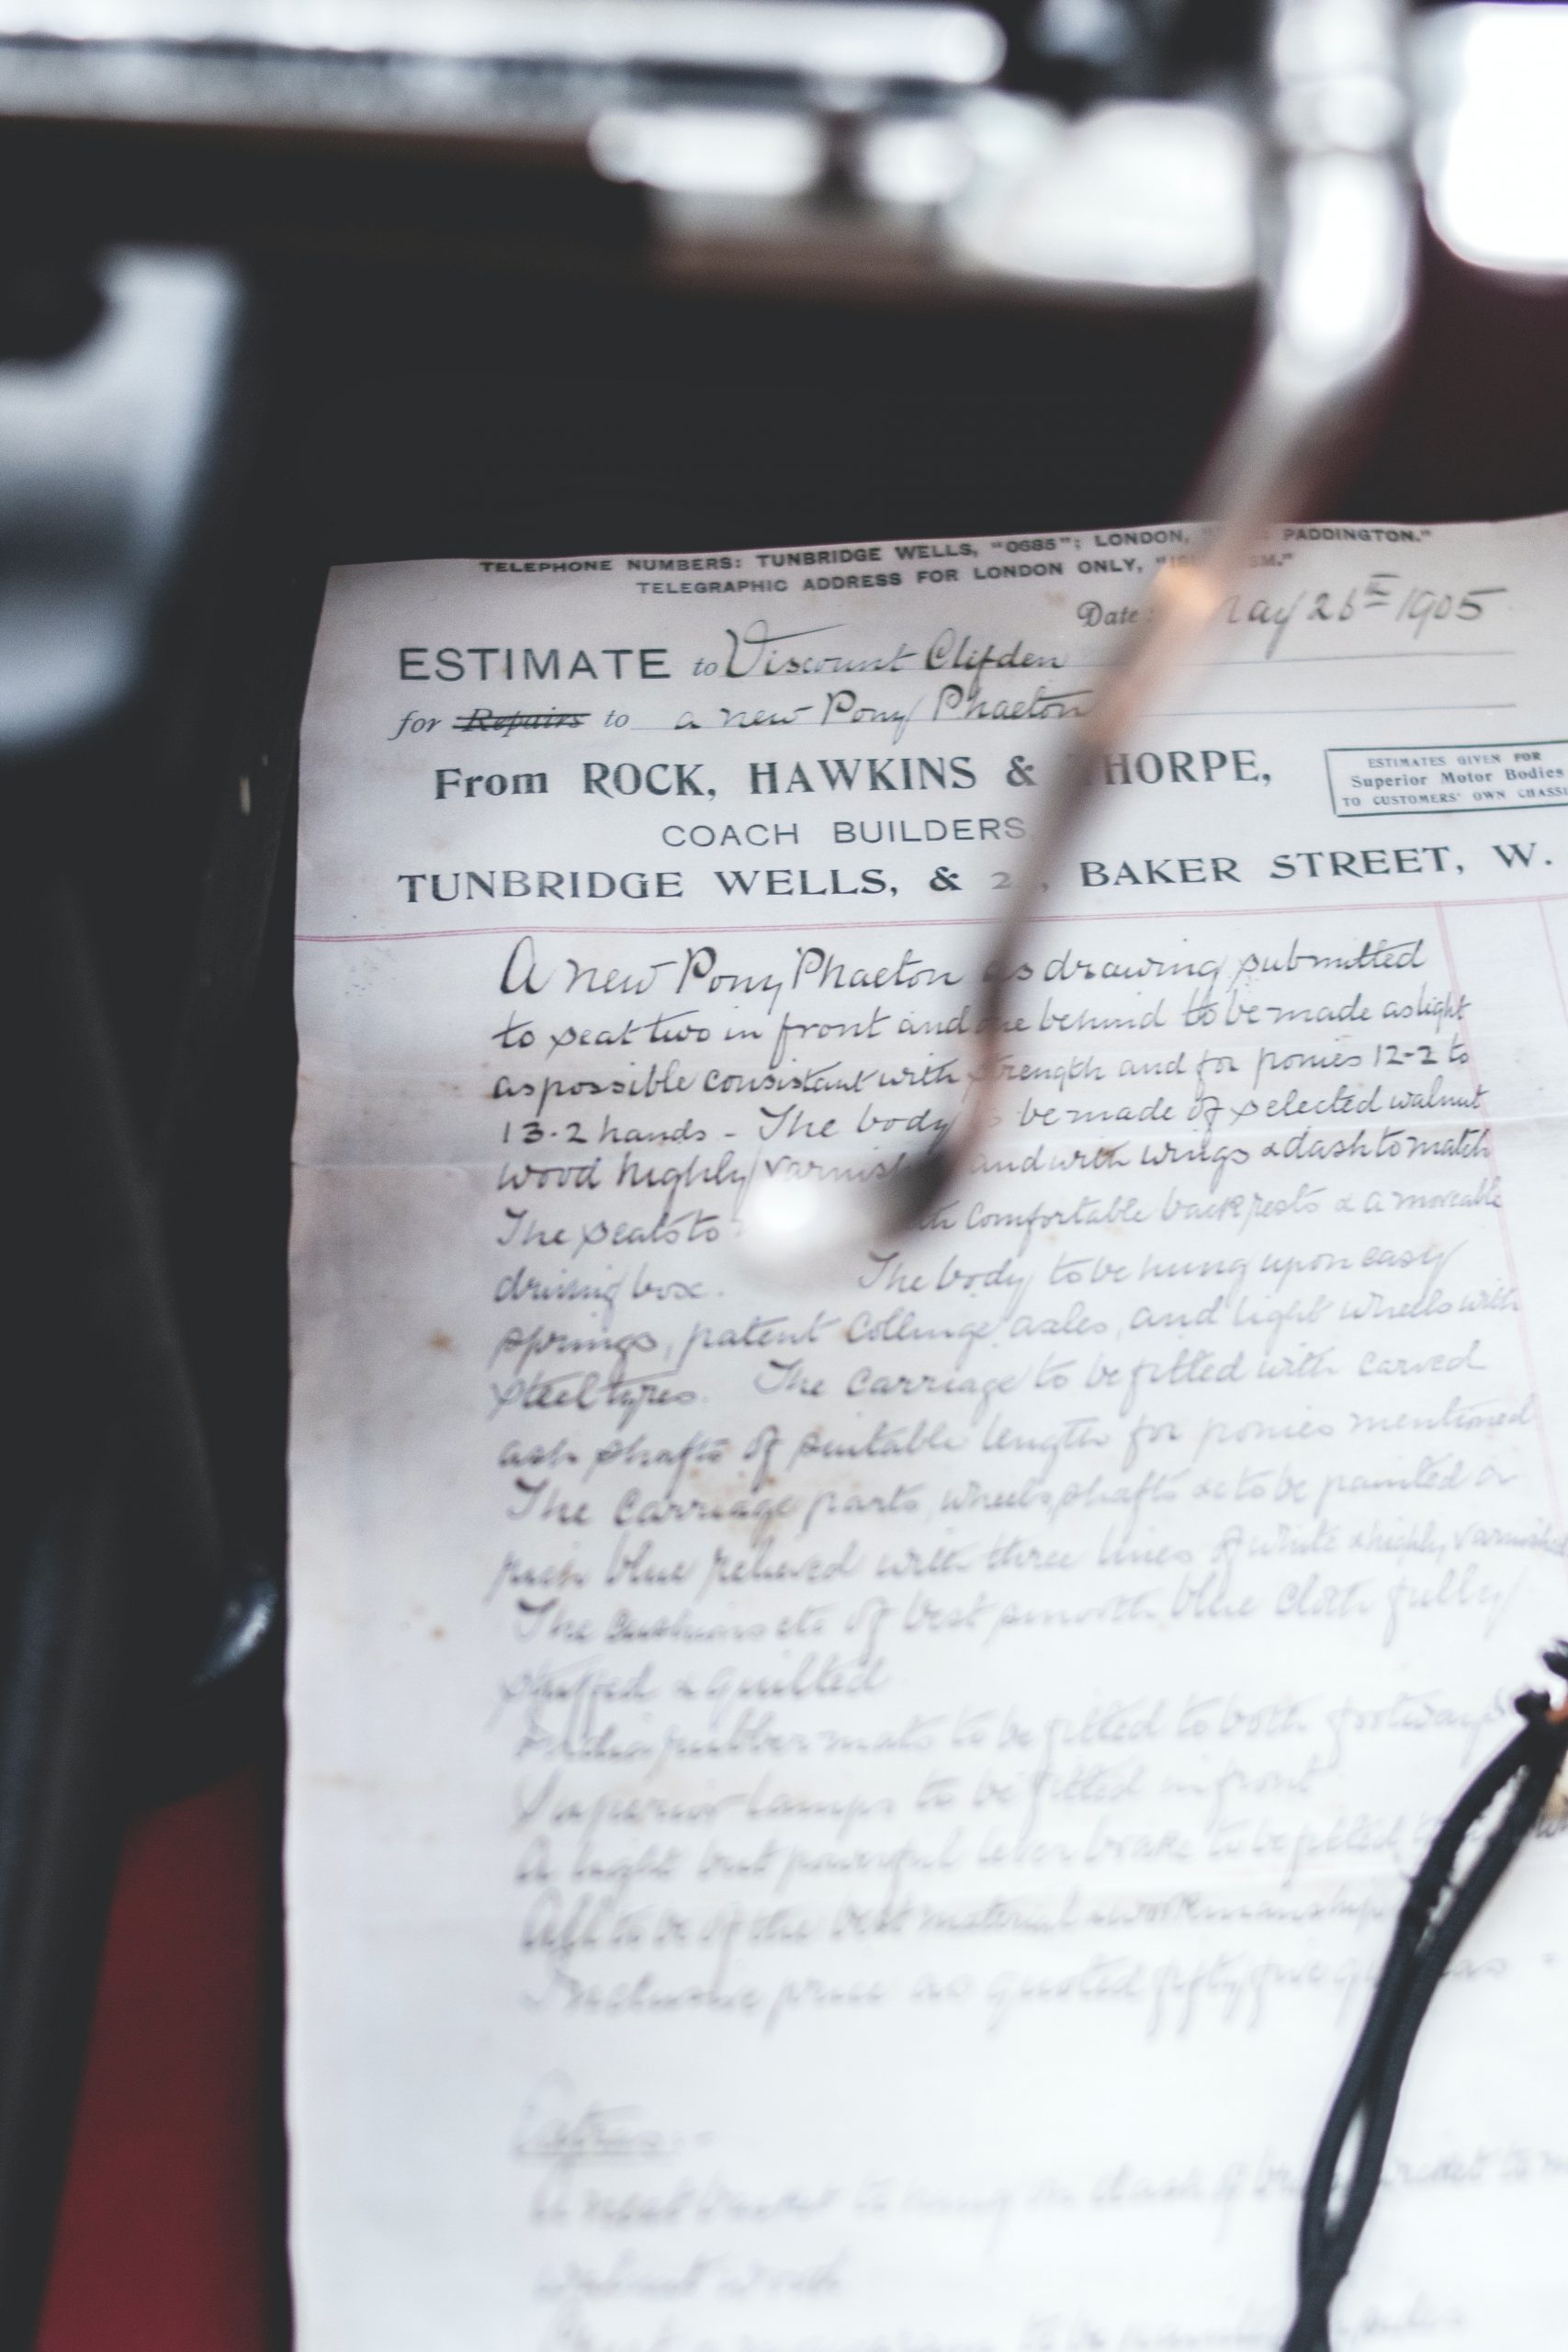 TELEPHONE NUMBERS: TUNBRIDGE WELLS, "0685"; LONDON, PADDINGTON."
TELEGRAPHIC ADDRESS FOR LONDON ONLY,
Date 1905
ESTIMATE to Viscount Clifden
for Repairs to a new Pony Phaeton
From ROCK, HAWKINS & THORPE,
ESTIMATES GIVEN FOR
Superior Motor Bodies
TO CUSTOMERS' OWN CHASSIS
COACH BUILDERS
TUNBRIDGE WELLS, & BAKER STREET, W.
A new Pony Phaeton as drawing submitted
to seat two in front and one behind to be made as light
as possible consistant with strength and for ponies 12-2 to
13-2 hands - The body be made of selected walnut
wood highly varnished and with wings & dash to match
The seats to with comfortable back rests & a moveable
driving box. The body to be hung upon easy
springs, patent Collinge axles, and light wheels with
steel tyres. The Carriage to be fitted with carved
ash shafts of suitable length for ponies mentioned
The Carriage parts, wheels, shafts &c to be painted a
rich blue relieved with three lines of white & highly varnished
The cushions etc of best smooth blue cloth fully
stuffed & quilted
rubber mats to be fitted to both footways
Superior lamps to be fitted in front
A light but powerful lever brake to be fitted
All to be of the best material & workmanship
price as quoted fifty five
Extras:-